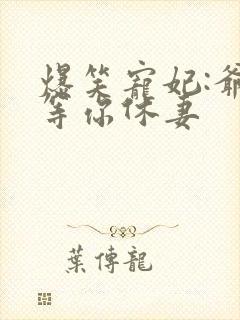 爆笑寵妃:爺
等你休妻
葉傳龍